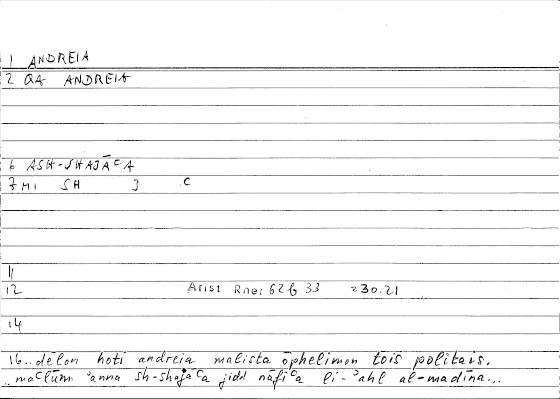 1 ANDREIA
2 QA ANDREIA
6 ASH-SHAJĀᶜA
7 MI SH J C
11
12 Arist Rhe: 62b 33 = 30.21
14
16.. dēlon hoti andreia malista ōphelimon tois politais.
.. maᶜlūm ʾanna sh-shajāᶜa jidd nāfiᶜa li-ʾahl al-madīna...